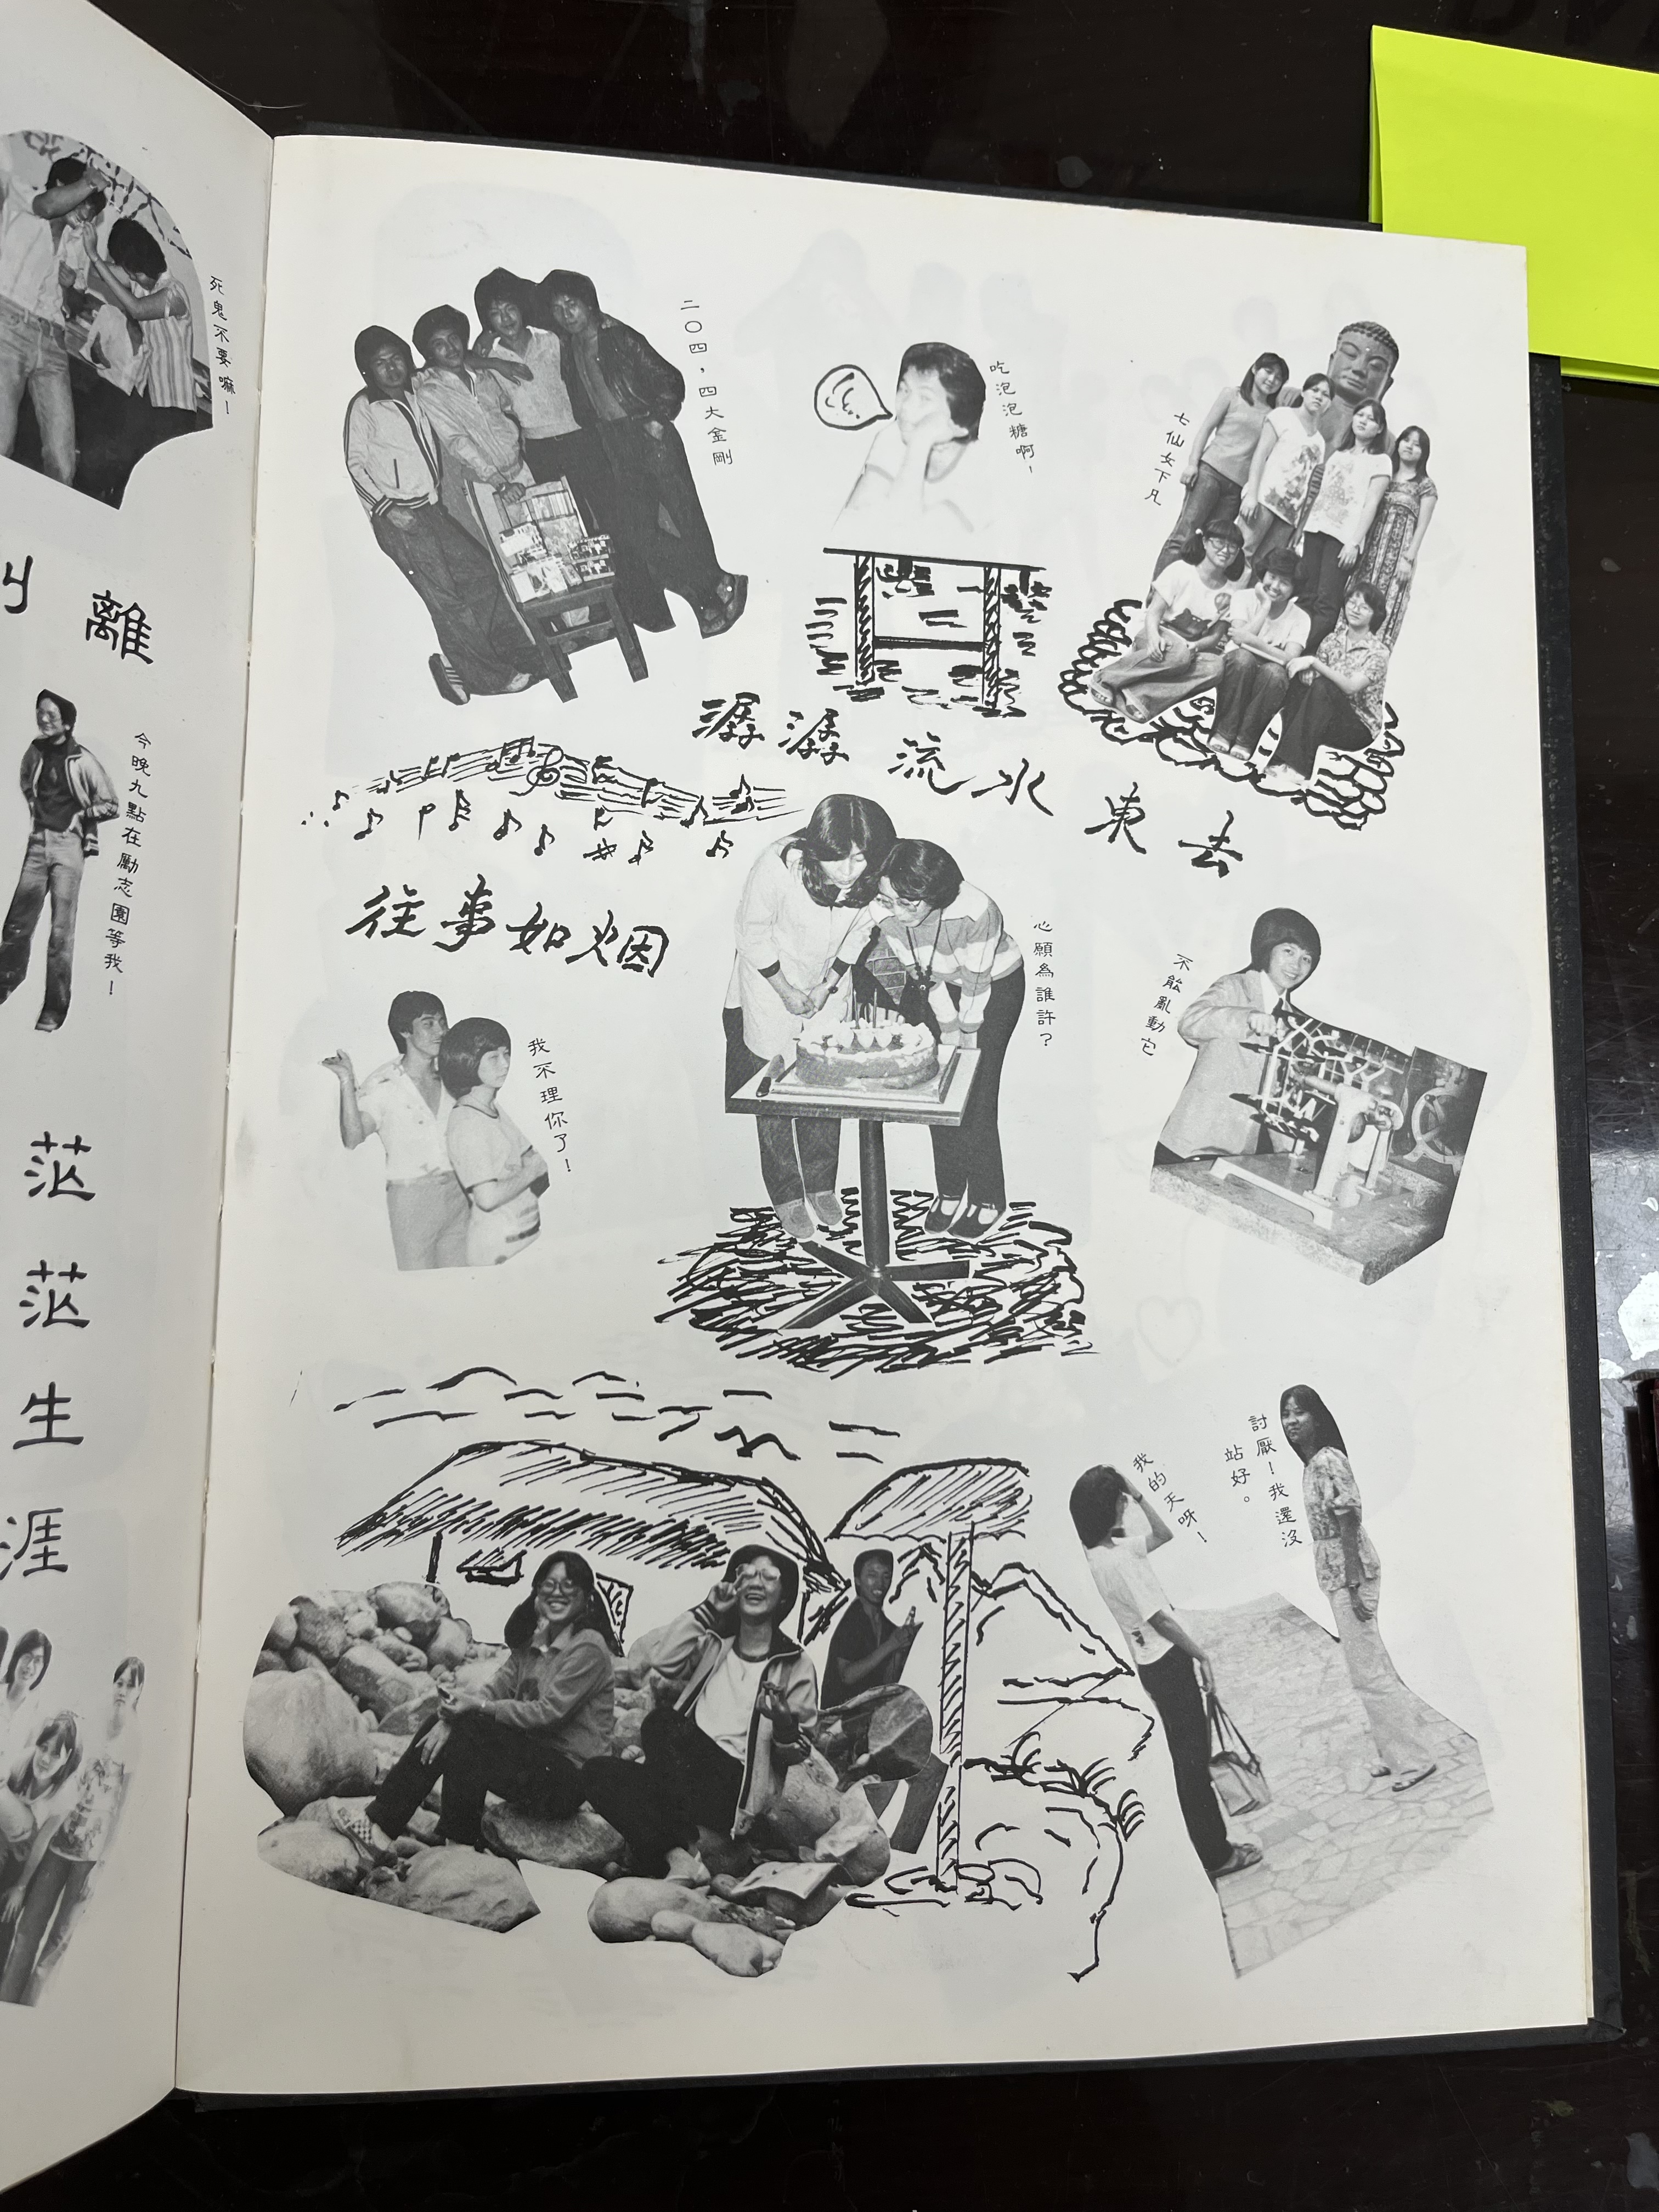 死鬼不要嘛！
離
今晚九點在勵志園等我！
茫茫生涯
二〇四，四大金剛
吃泡泡糖啊！
七仙女下凡
潺潺流水東去
往事如烟
心願為誰許？
不能亂動它
我不理你了！
討厭！我還沒
站好。
我的天呀！